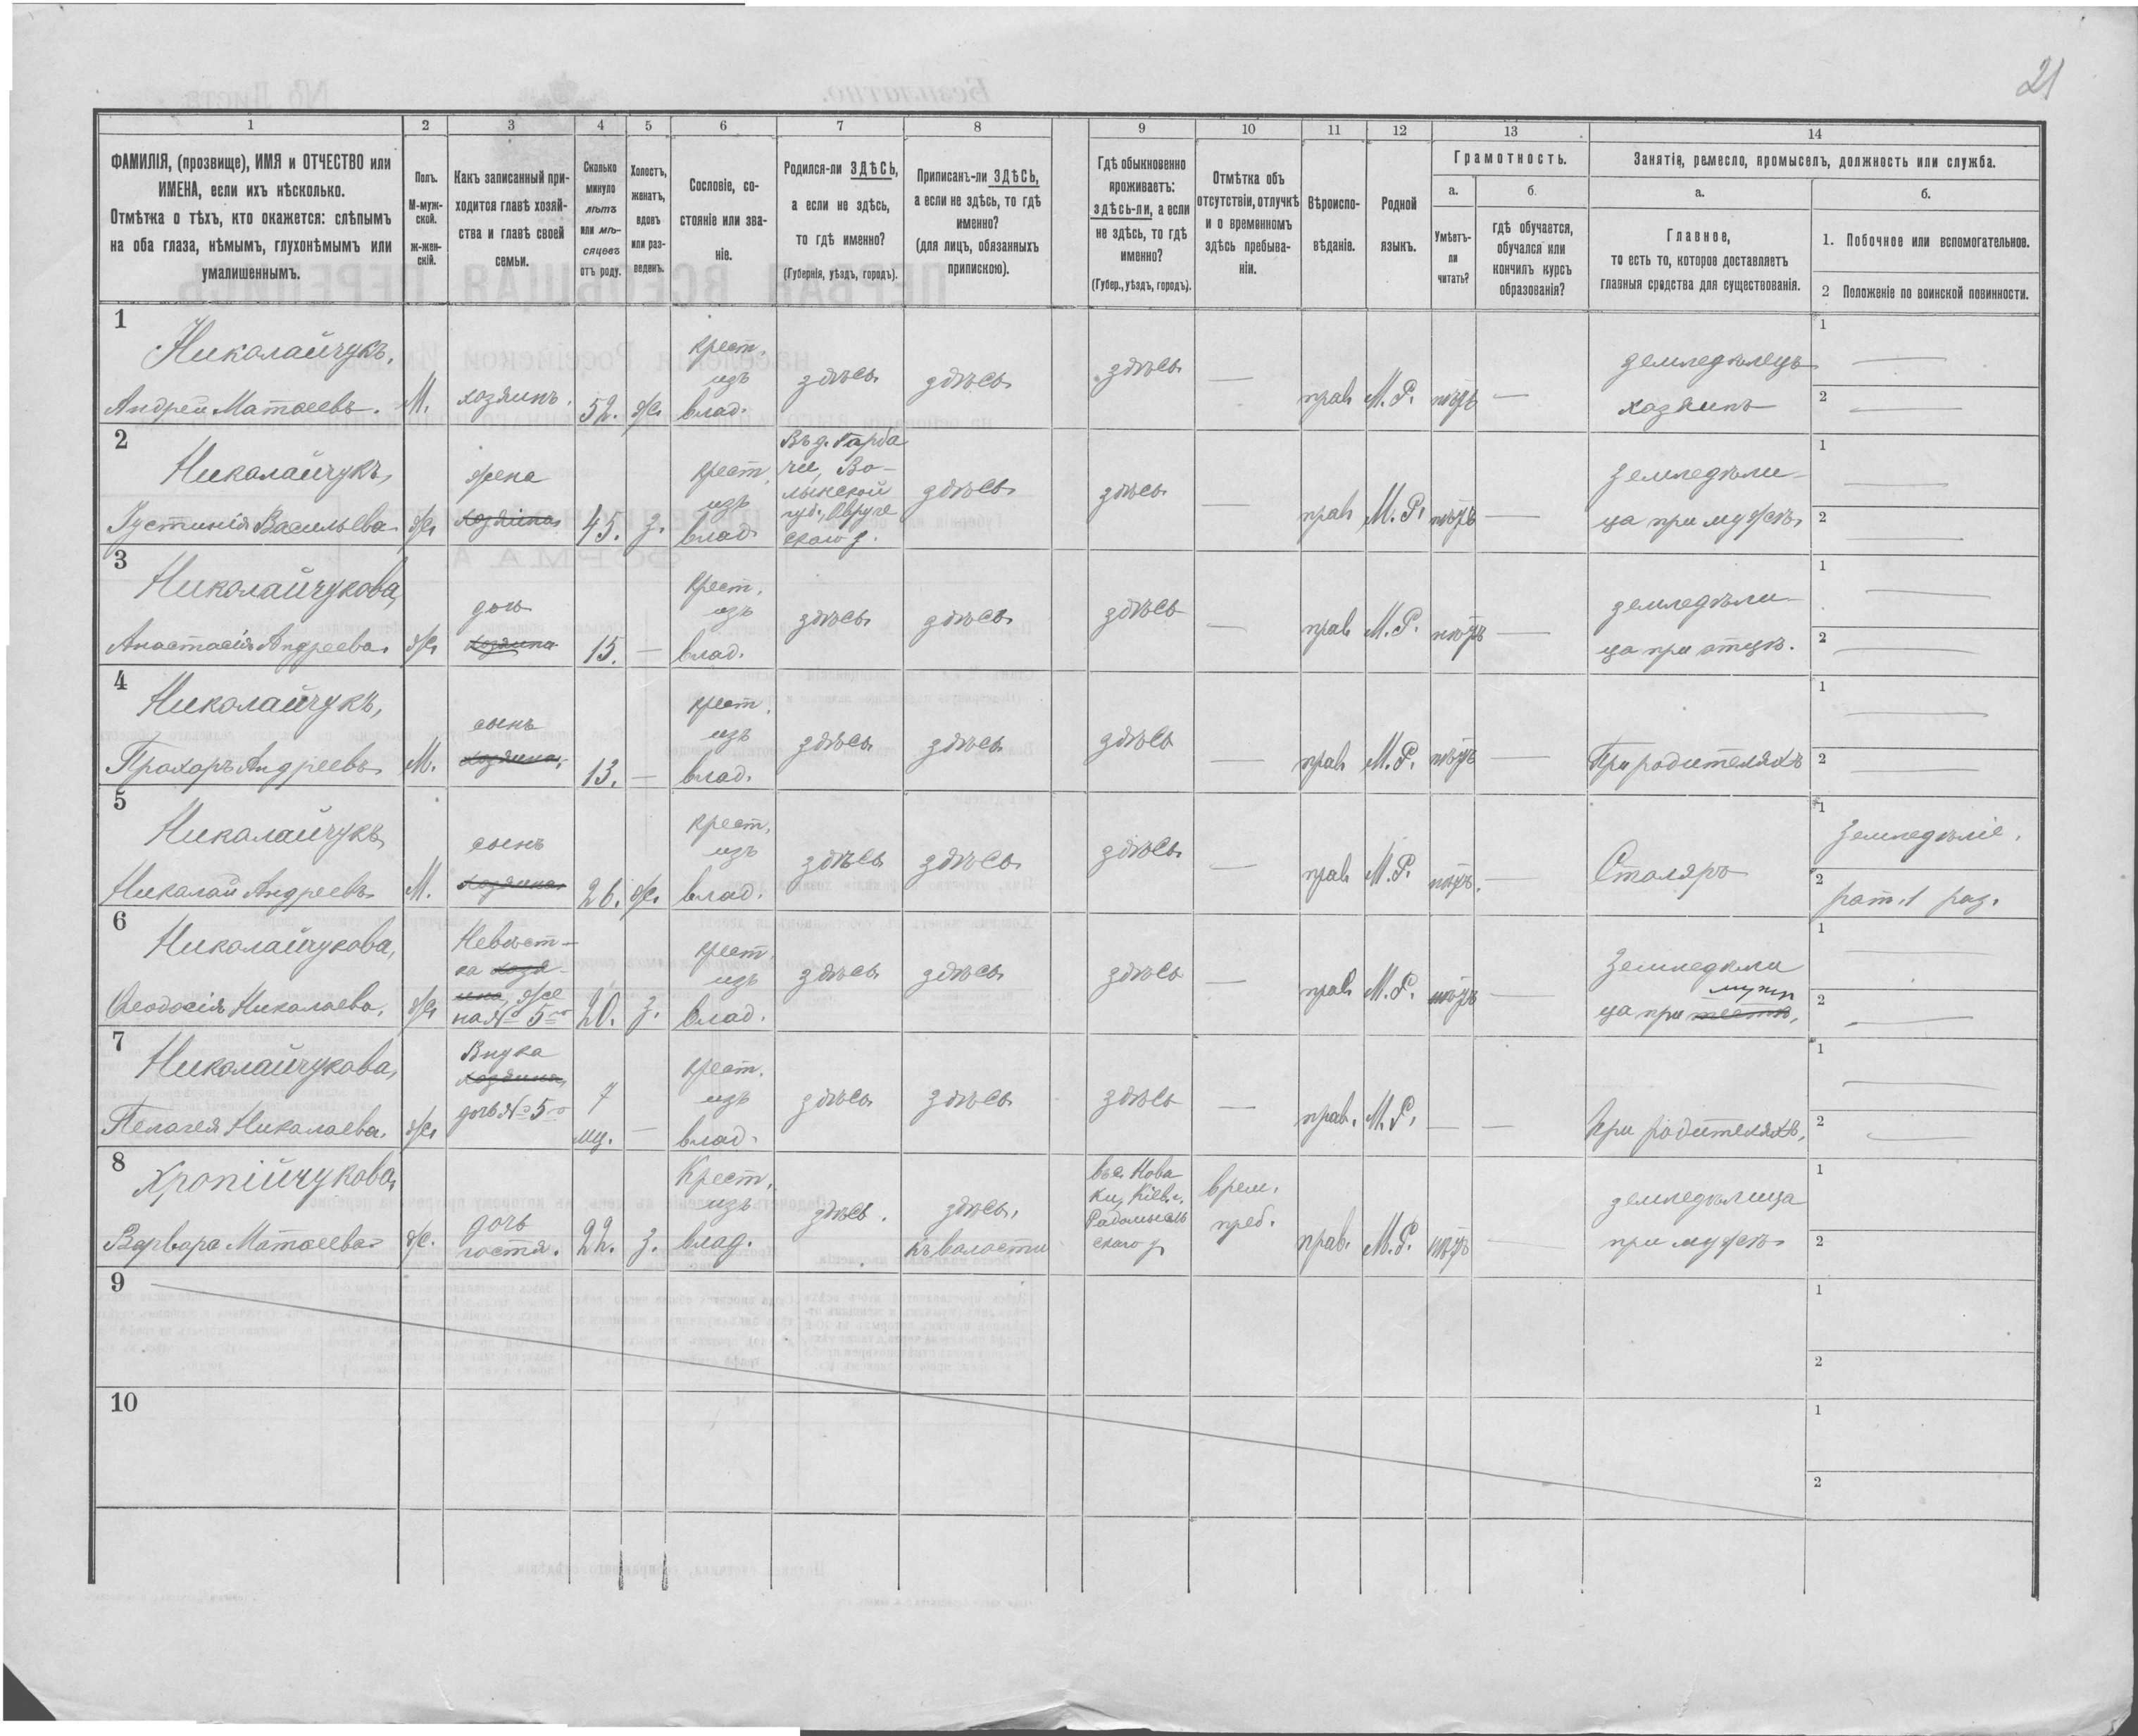 21
1
2
3
4
5
6
7
8
9
10
11
12
13
14
ФАМИЛІЯ, (прозвище), ИМЯ и ОТЧЕСТВО или
ИМЕНА, если ихъ нѣсколько.
Отмѣтка о тѣхъ, кто окажется: слѣпымъ
на оба глаза, нѣмымъ, глухонѣмымъ или
умалишеннымъ.
Полъ.
М-муж-
ской.
ж-жен-
скій.
Какъ записанный при-
ходится главѣ хозяй-
ства и главѣ своей
семьи.
Сколько
минуло
лѣтъ
или мѣ-
сяцевъ
отъ роду.
Холостъ,
женатъ,
вдовъ
или раз-
веденъ.
Сословіе, со-
стояніе или зва-
ніе.
Родился-ли ЗДѢСЬ,
а если не здѣсь,
то гдѣ именно?
(Губернія, уѣздъ, городъ).
Приписанъ-ли ЗДѢСЬ,
а если не здѣсь, то гдѣ
именно?
(для лицъ, обязанныхъ
припискою).
Гдѣ обыкновенно
проживаетъ:
здѣсь-ли, а если
не здѣсь, то гдѣ
именно?
(Губер., уѣздъ, городъ).
Отмѣтка объ
отсутствіи, отлучкѣ
и о временномъ
здѣсь пребыва-
ніи.
Вѣроиспо-
вѣданіе.
Родной
языкъ.
Грамотность.
а.
б.
Умѣетъ-
ли
читать?
гдѣ обучается,
обучался или
кончилъ курсъ
образованія?
Занятія, ремесло, промыселъ, должность или служба.
а.
б.
Главное,
то есть то, которое доставляетъ
главныя средства для существованія.
1. Побочное или вспомогательное.
2 Положеніе по воинской повинности.
1
Николайчукъ,
Андрей Матѳеевъ.
М.
хозяинъ.
52.
ж.
крест.
изъ
влад.
здѣсь
здѣсь
здѣсь
—
прав.
М. Р.
нѣтъ
—
земледѣлецъ
хозяинъ
1 —
2 —
2
Николайчукъ,
Іустинія Васильева
ж.
жена
хозяина
45.
з.
крест.
изъ
влад.
Въ д. Гарба
чи, Во-
лынской
губ., Овруче
скаго у.
здѣсь
здѣсь
—
прав.
М. Р.
нѣтъ
—
земледѣли-
ца при мужѣ.
1 —
2 —
3
Николайчукова,
Анастасія Андреева.
ж.
дочь
хозяина
15.
—
крест.
изъ
влад.
здѣсь
здѣсь
здѣсь
—
прав.
М. Р.
нѣтъ
—
земледѣли-
ца при отцѣ.
1 —
2 —
4
Николайчукъ,
Прохоръ Андреевъ
М.
сынъ
хозяина,
13.
—
крест.
изъ
влад.
здѣсь
здѣсь
здѣсь
—
прав.
М. Р.
нѣтъ
—
При родителяхъ
1 —
2 —
5
Николайчукъ
Николай Андреевъ
М.
сынъ
хозяина
26.
ж.
крест.
изъ
влад.
здѣсь
здѣсь
здѣсь
—
прав.
М. Р.
нѣтъ.
—
Столяръ
1 Земледѣліе.
2 рат. 1 раз.
6
Николайчукова,
Ѳеодосія Николаева,
ж.
Невѣст-
ка хозя-
ина, же
на № 5го
20.
з.
крест.
изъ
влад.
здѣсь
здѣсь
здѣсь
—
прав.
М. Р.
нѣтъ
—
Земледѣли
мужѣ
ца при тестѣ,
1 —
2 —
7
Николайчукова,
Пелагея Николаева.
ж.
Внука
хозяина,
дочь № 5го
7
мц.
—
крест.
изъ
влад.
здѣсь
здѣсь
здѣсь
—
прав.
М. Р.
—
—
При родителяхъ,
1 —
2 —
8
Хропійчукова,
Варвара Матѳеева
ж.
дочь
гостя.
22.
з.
Крест.
изъ
влад.
здѣсь.
здѣсь,
къ волости
въ с. Нова
ки, Кіев. г.
Радомысль
скаго у.
врем.
преб.
прав.
М. Р.
нѣтъ
—
земледѣлица
при мужѣ
1
2
9
1
2
10
1
2